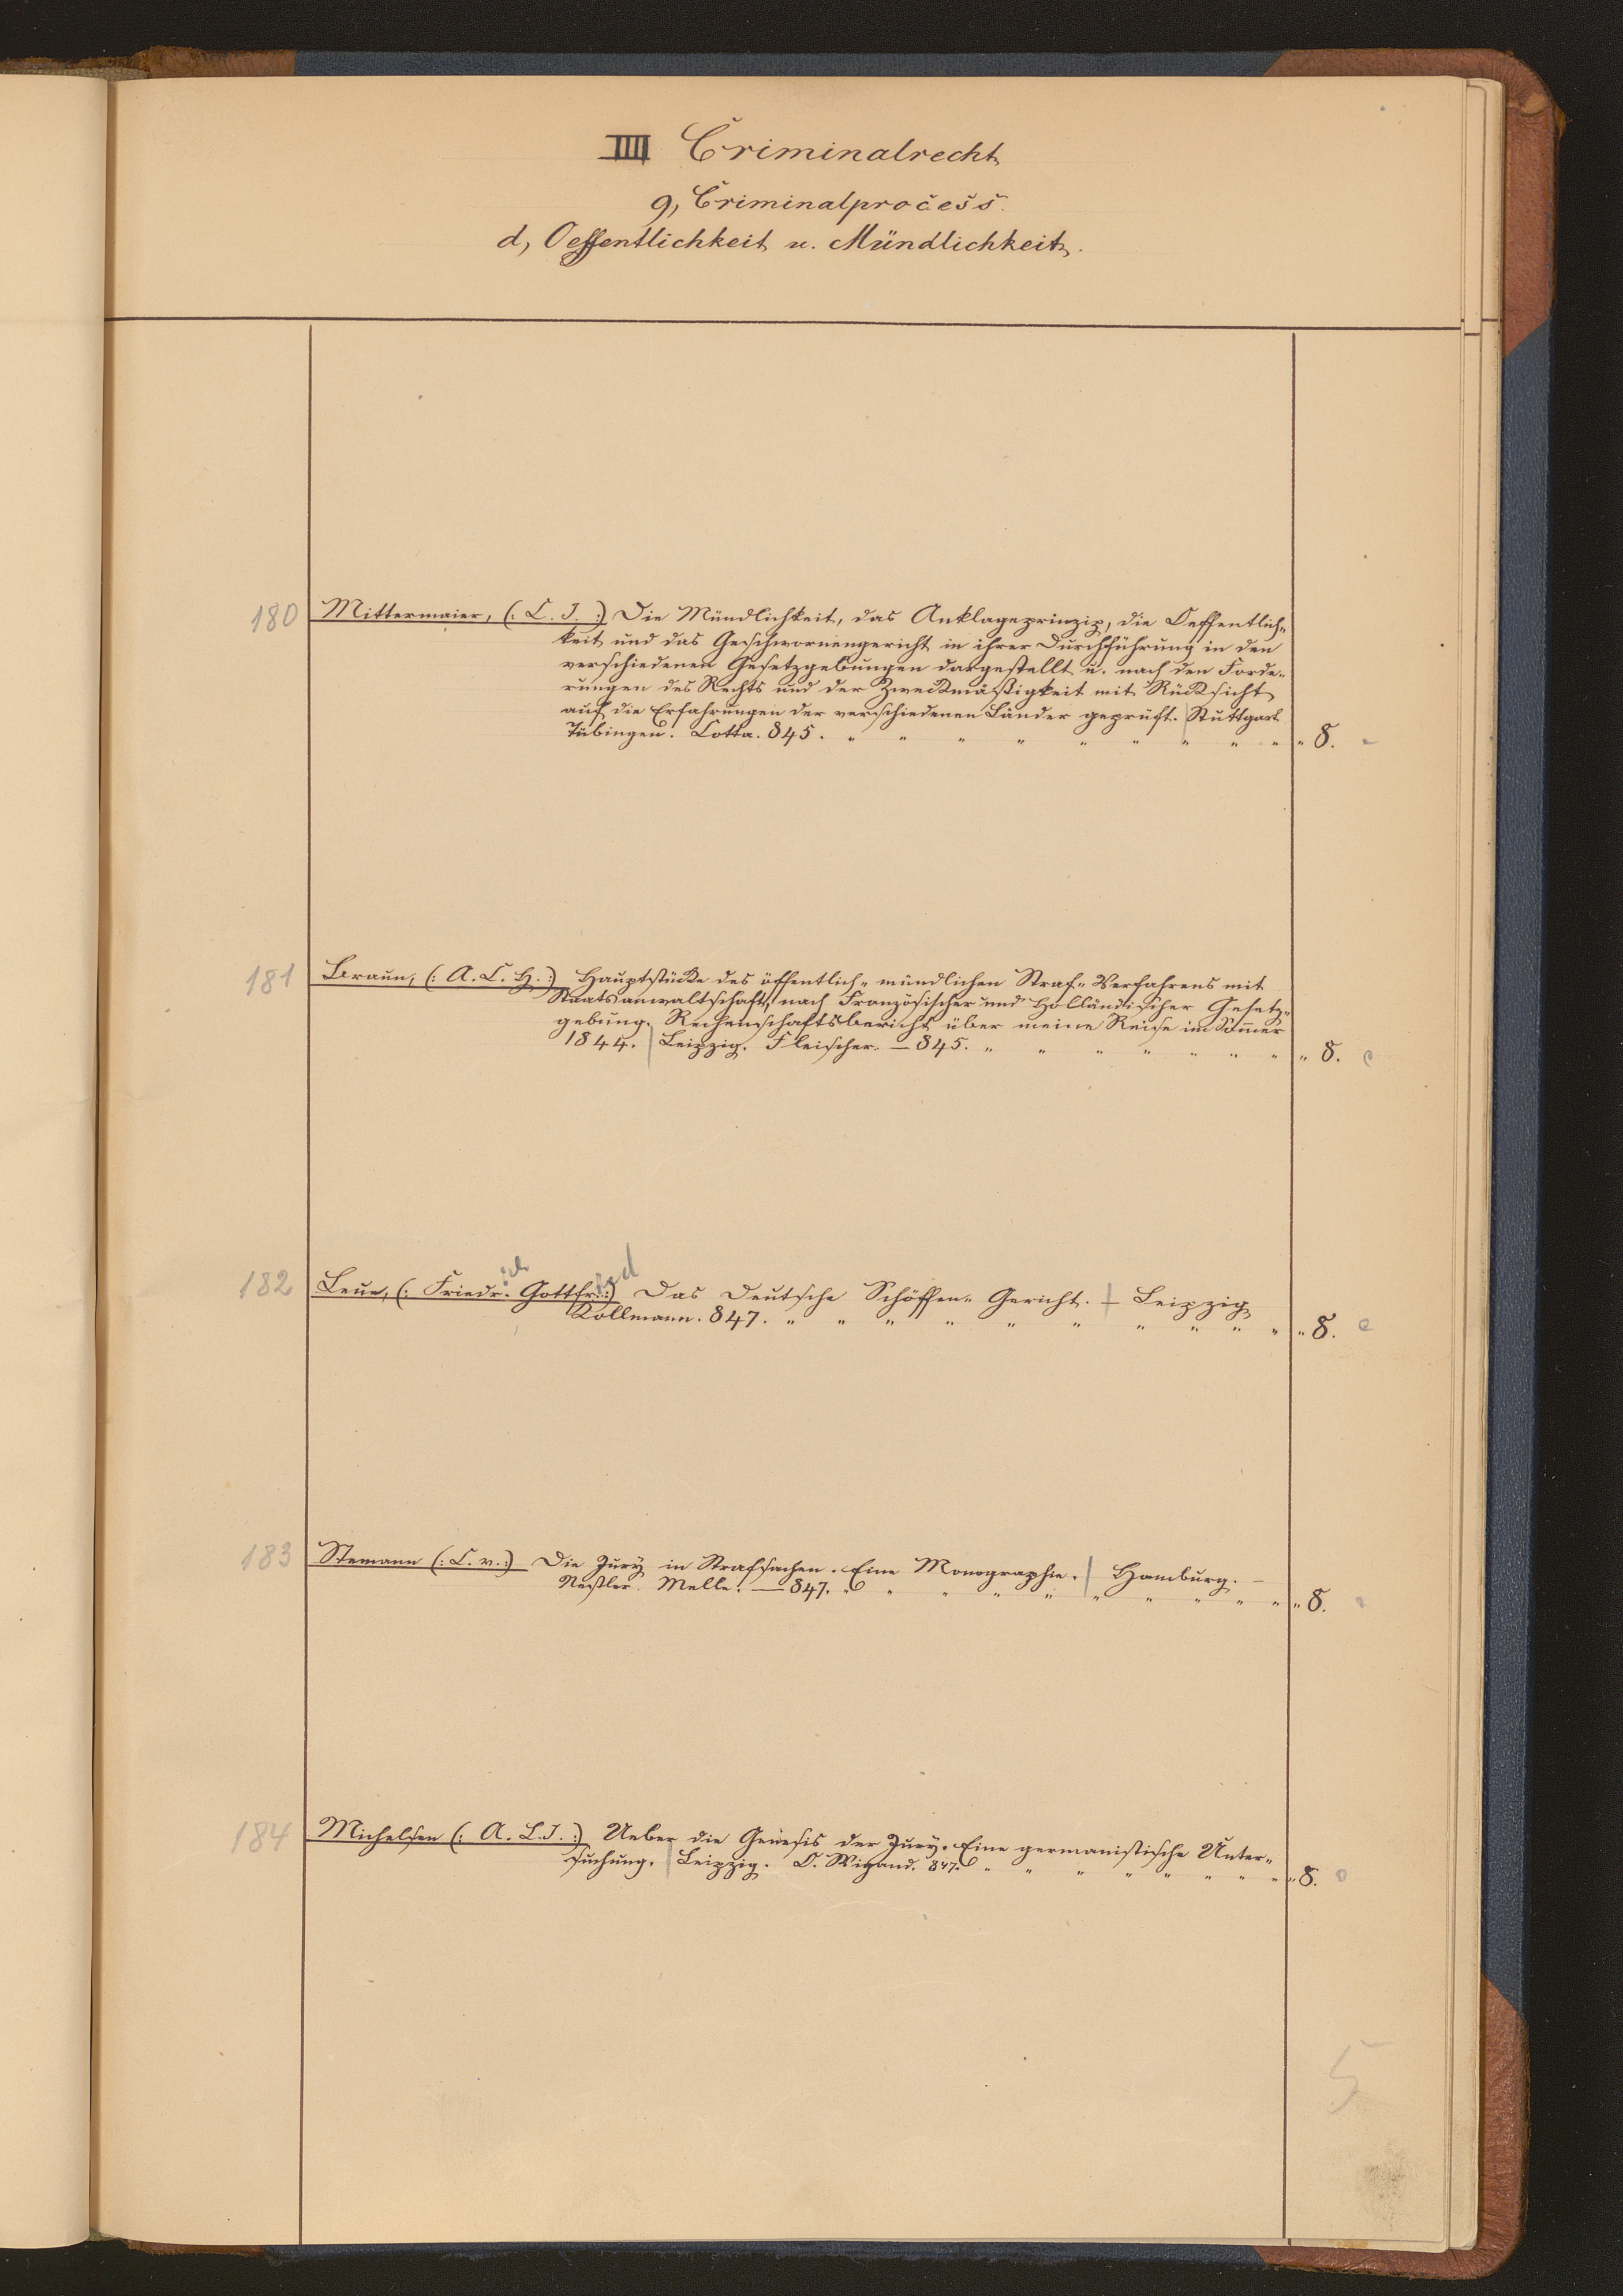 IIII Criminalrecht
g, Criminalprocess.
d, Oeffentlichkeit u. Mündlichkeit.
180 Mittermaier, (: C. J. :) Die Mündlichkeit, das Anklageprinzip, die Oeffentlich-
keit und das Geschwornengericht in ihrer Durchführung in den
verschiedenen Gesetzgebungen dargestellt u. nach den Forde-
rungen des Rechts und der Zweckmäßigkeit mit Rücksicht
auf die Erfahrungen der verschiedenen Länder geprüft. | Stuttgart
Tübingen. Cotta. 845. " " " " " " " " " " 8.
181 Braun, (: A. C. H. :) Hauptstücke des öffentlich-mündlichen Straf-Verfahrens mit
Staatsanwaltschaft, nach Französischer und Holländischer Gesetz-
gebung. Rechenschaftsbericht über meine Reise im Sommer
1844. | Leipzig. Fleischer. — 845. " " " " " " " " 8.
182 Leue, (: Friedr. Gottfr. :) Das Deutsche Schöffen-Gericht. | Leipzig
Kollmann. 847. " " " " " " " " " " " 8.
183 Stemann (: C. v. :) Die Jury in Strafsachen. Eine Monographie. | Hamburg. —
Nestler. Melle. — 847. " " " " " " " " " " 8.
184 Michelsen (: A. L. J. :) Ueber die Genesis der Jury. Eine germanistische Unter-
suchung. | Leipzig. O. Wigand. 847. " " " " " " " " 8.
5